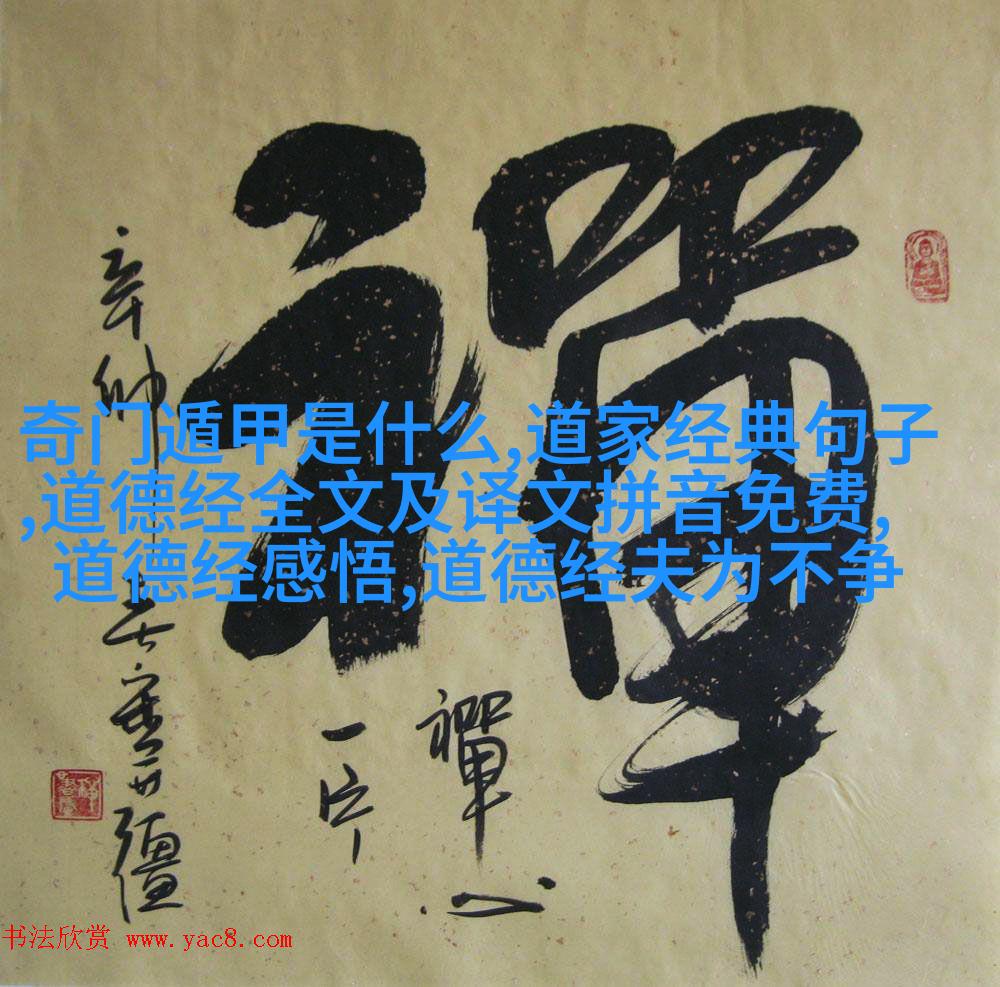 禪
奇门遁甲是什么,道家经典句子
,道德经全文及译文拼音免费,
道德经感悟,道德经夫为不争
禪心
一片
辛卯
书法欣赏 www.yac8.com